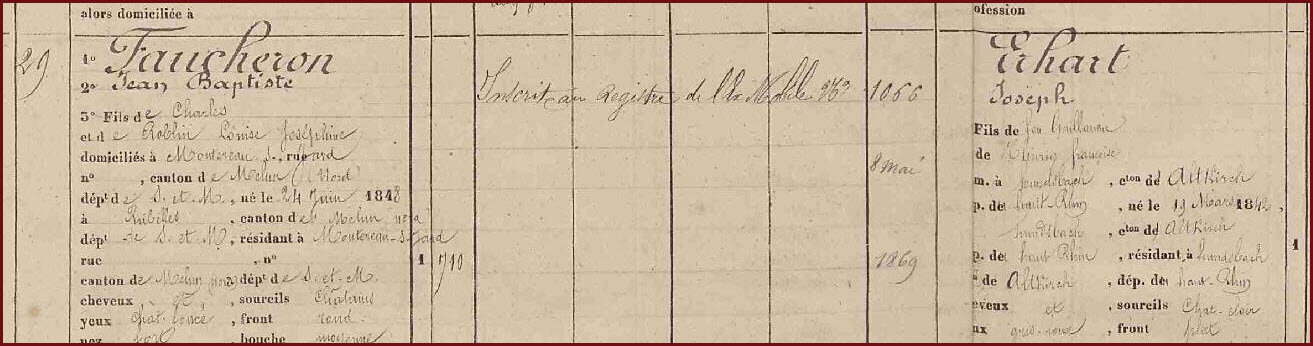 alors domiciliée à
29
1º Faucheron
2º Jean Baptiste
3º Fils de Charles
et de Roblin Louise Joséphine
domiciliés à Montereau S., rue Jard
nº , canton de Melun (Nord
dépt de S. et M., né le 24 Juin 1848
à Rubelles , canton de Melun nord
dépt de S. et M., résidant à Montereau-S-Jard
rue , nº
canton de Melun nord dépt de S. et M.
cheveux et , sourcils Chatains
yeux Chat. foncé , front rond
nez fort , bouche moyenne
1 710
Inscrit au Registre de la Mobile
1066
8 mai
1869
ofession
Erhart
Joseph
Fils de
de françoise
m. à , cton de Altkirch
p. de haut-Rhin , né le 19 Mars ,
, cton de Altkirch
p. de haut Rhin , résidant à
de Altkirch , dép. de haut-Rhin
eveux et , sourcils Chat. clair
ux , front
1